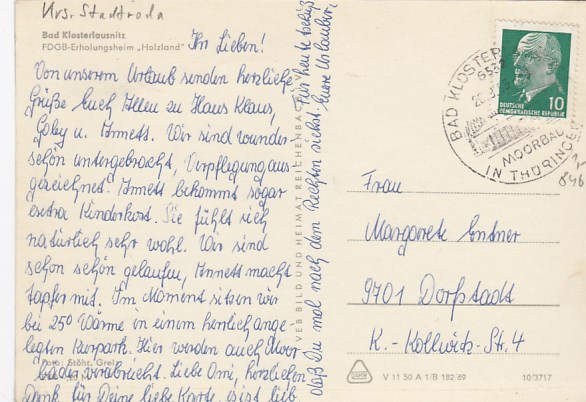 Krs. Stadtroda
Bad Klosterlausnitz
FDGB-Erholungsheim „Holzland"
Ihr Lieben!
Von unserem Urlaub senden herzliche
Grüße Euch Allen zu Haus Klaus,
Gaby u. Annett. Wir sind wunder-
schön untergebracht, Verpflegung aus-
gezeichnet. Annett bekommt sogar
extra Kinderkost. Sie fühlt sich
natürlich sehr wohl. Wir sind
schon schön gelaufen, Annett macht
tapfer mit. Im Moment sitzen wir
bei 25° Wärme in einem herrlich ange-
legten Kurpark. Hier werden auch Moor
bäder verabreicht. Liebe Omi, herzlichen
Dank für Deine liebe Karte, es ist lieb
daß Du mal nach dem Rechten siehst.
Für heute
Eure Urlauber.
Foto: Stöhr, Greiz
VEB BILD UND HEIMAT REICHENBACH
BAD KLOSTER
653
MOORBAD
IN THÜRINGEN
DEUTSCHE
DEMOKRATISCHE REPUBLIK
10
846
Frau
Margarete Entner
9701 Dorfstadt
K.-Kollwitz-Str. 4
V 11 50 A 1/B 182/69
10/3717